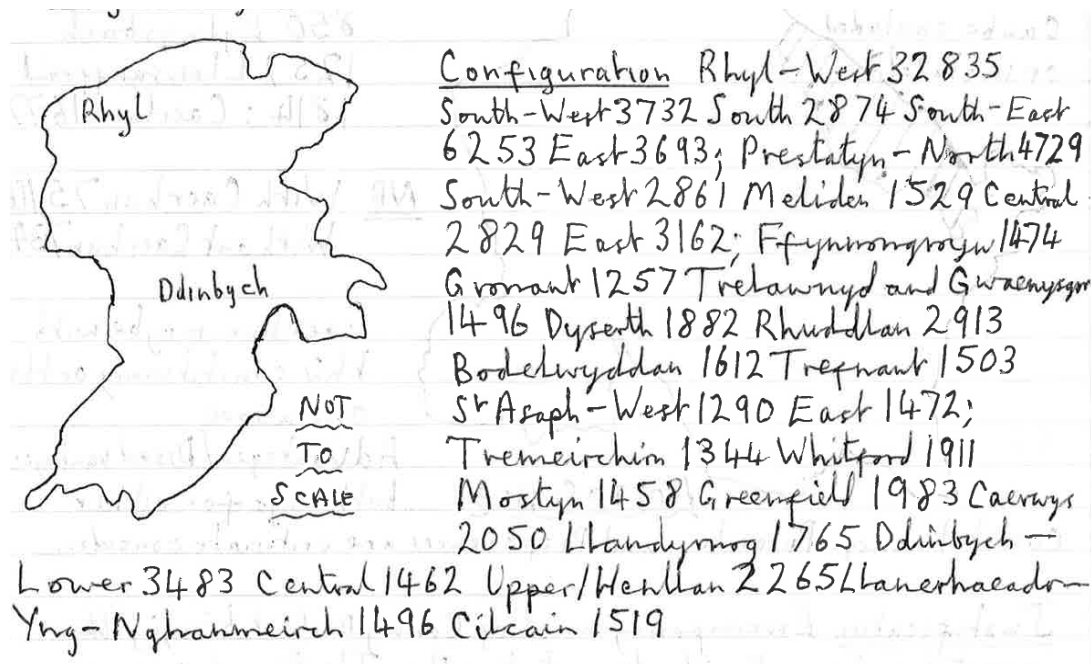 Rhyl
Ddinbych
NOT
TO
SCALE
Configuration Rhyl-West 32835
South-West 3732 South 2874 South-East
6253 East 3693; Prestatyn - North 4729
South-West 2861 Meliden 1529 Central
2829 East 3162; Ffynnongroyw 1474
Gronant 1257 Trelawnyd and Gwaenysgor
1496 Dyserth 1882 Rhuddlan 2913
Bodelwyddan 1612 Trefnant 1503
St Asaph - West 1290 East 1472;
Tremeirchion 1344 Whitford 1911
Mostyn 1458 Greenfield 1983 Caerwys
2050 Llandyrnog 1765 Ddinbych -
Lower 3483 Central 1462 Upper/Henllan 2265 Llanerhaeadr-
Yng-Nghanmeirch 1496 Cilcain 1519